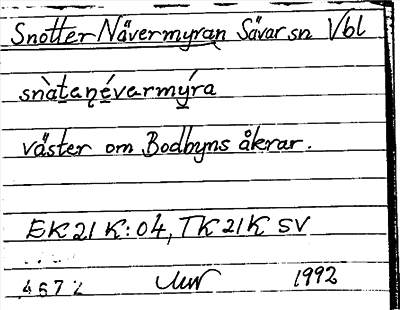 Snötter Nävermyran Sävar sn Vbl
snàtenévarmýra
väster om Bodbyns åkrar.
EK 21 K:04, TK 21 K SV
4672 1992